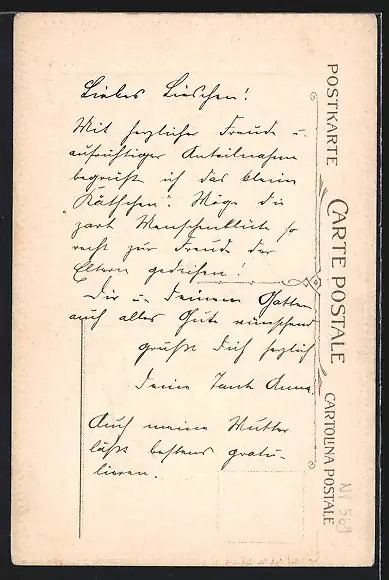 Liebes Lieschen!
Mit herzlicher Freude u.
aufrichtiger Anteilnahme
begrüßt ich das kleine
"Käthchen". Möge die
zart Menschenblüte so
recht zur Freude der
Eltern gedeihen!
Dir u. Deinem Gatten
auch alles Gute wünschend
grüßt Dich herzlich
Deine Tante Anna.
Auch meine Mutter
läßt bestens gratu-
lieren.
POSTKARTE
CARTE POSTALE
CARTOLINA POSTALE